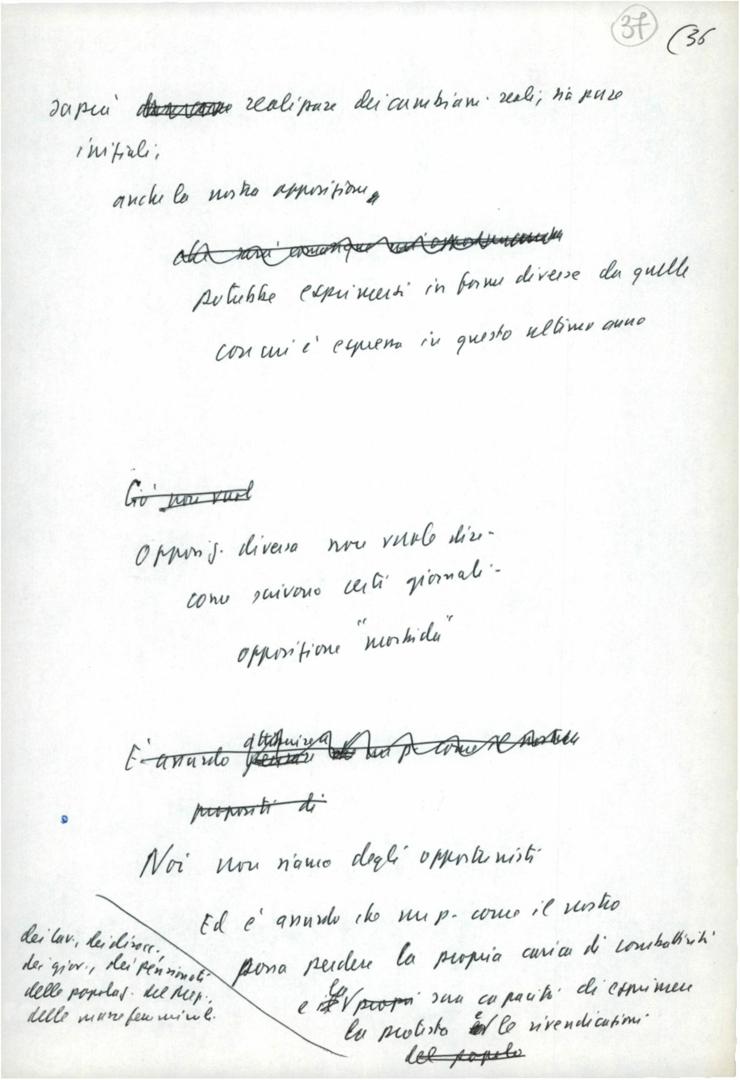 37 (36
saprà realizzare dei cambiam. reali, sia pure
iniziali,
anche la nostra opposizione
potrebbe esprimersi in forme diverse da quelle
con cui è espressa in questo ultimo anno
Ciò non vuol
Opposiz. diversa non vuole dire -
come scrivono certi giornali -
opposizione "morbida"
attribuire a
È assurdo pensare un p. come il nostro
propositi di
Noi non siamo degli opportunisti
Ed è assurdo che un p. come il nostro
possa perdere la propria carica di combattività
e la sua capacità di esprimere
la protesta e le rivendicazioni
del popolo
dei lav., dei disocc.,
dei giov., dei pensionati
delle popolaz. del Mez.
delle masse femminil.